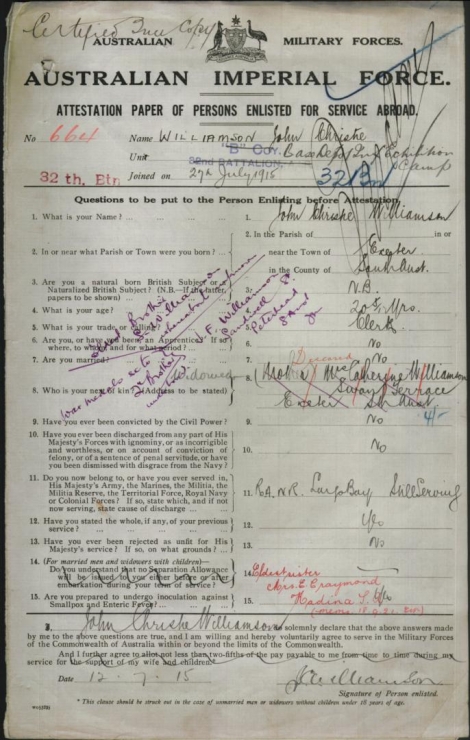 Certified True Copy
AUSTRALIAN MILITARY FORCES.
AUSTRALIAN IMPERIAL FORCE.
ATTESTATION PAPER OF PERSONS ENLISTED FOR SERVICE ABROAD.
No 664 Name WILLIAMSON John Christie
Unit "B" COY. 32nd BATTALION. Base Camp
32 th. Btn Joined on 27th July 1915 32 Bn
Questions to be put to the Person Enlisting before Attestation.
1. What is your Name? 1. John Christie Williamson
2. In or near what Parish or Town were you born? 2. In the Parish of in or
near the Town of Exeter
in the County of South Aust.
3. Are you a natural born British Subject or a Naturalized British Subject? (N.B.—If the latter, papers to be shown) 3. N.B.
4. What is your age? 4. 20
5. What is your trade or calling? 5. Clerk
6. Are you, or have you been, an Apprentice? If so, where, to whom, and for what period? 6. No
7. Are you married? 7. No
Deceased
8. Who is your next of kin? (Address to be stated) 8. (Mother) Mrs Catherine Williamson
Terrace
Exeter Sth Aust
4/-
9. Have you ever been convicted by the Civil Power? 9. No
10. Have you ever been discharged from any part of His
Majesty's Forces with ignominy, or as incorrigible
and worthless, or on account of conviction of
felony, or of a sentence of penal servitude, or have
you been dismissed with disgrace from the Navy? 10. No
11. Do you now belong to, or have you ever served in,
His Majesty's Army, the Marines, the Militia, the
Militia Reserve, the Territorial Force, Royal Navy
or Colonial Forces? If so, state which, and if not
now serving, state cause of discharge 11. R.A.N.R. Largs Bay Still Serving
12. Have you stated the whole, if any, of your previous
service? 12. Yes
13. Have you ever been rejected as unfit for His
Majesty's service? If so, on what grounds? 13. No
14. (For married men and widowers with children)—
Do you understand that no Separation Allowance
will be issued to you either before or after
embarkation during your term of service? 14. Eldest sister
15. Are you prepared to undergo inoculation against
Smallpox and Enteric Fever? 15. Yes
Mrs. E. Graymond
Kadina
J. F. Williamson
Peterhead
S Aus
I, John Christie Williamson solemnly declare that the above answers
made by me to the above questions are true, and I am willing and hereby voluntarily agree to serve in the Military Forces
of the Commonwealth of Australia within or beyond the limits of the Commonwealth.
And I further agree to allot not less than two-fifths of the pay payable to me from time to time during my
service for the support of my wife and children.
Date 12. 7. 15 J C Williamson
Signature of Person enlisted.
* This clause should be struck out in the case of unmarried men or widowers without children under 18 years of age.